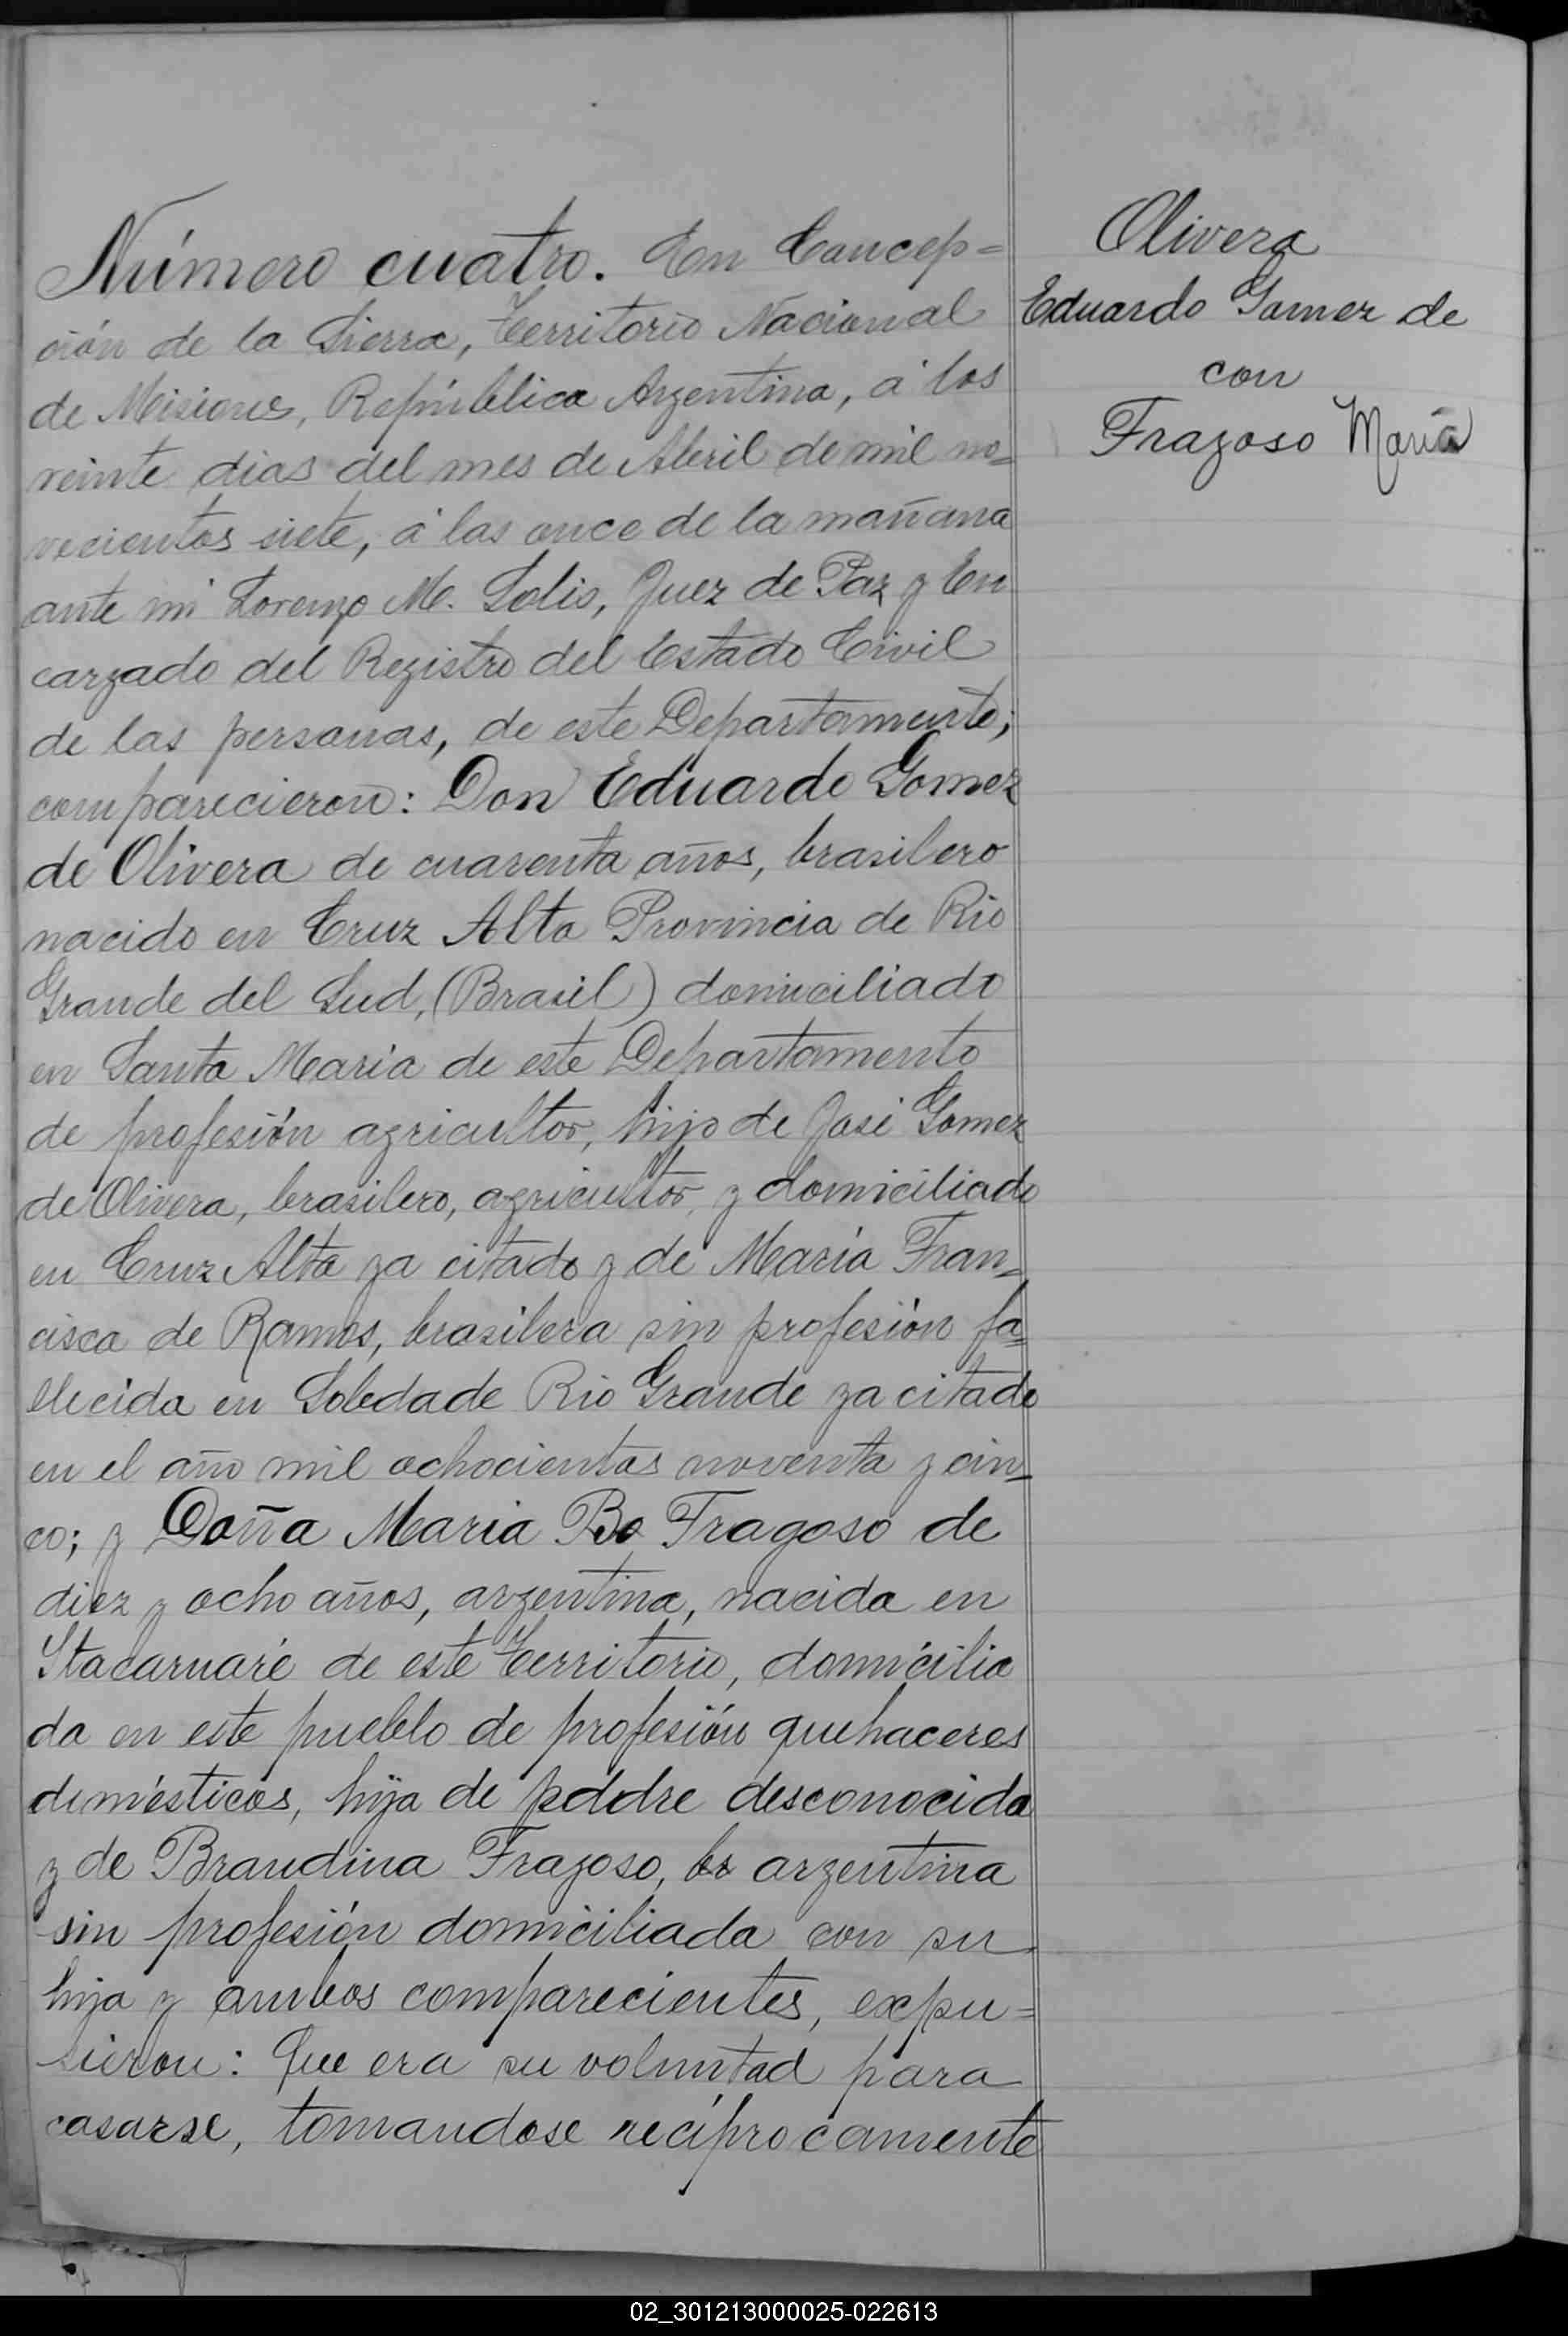 Número cuatro. En Concep=
ción de la Sierra, Territorio Nacional
de Misiones, República Argentina, á los
veinte dias del mes de Abril de mil no=
vecientos siete, á las once de la mañana
ante mi Lorenzo M. Solis, Juez de Paz y En
cargado del Registro del Estado Civil
de las personas, de este Departamento;
comparecieron: Don Eduardo Gomez
de Olivera de cuarenta años, brasilero
nacido en Cruz Alta Provincia de Rio
Grande del Sud, (Brasil) domiciliado
en Santa Maria de este Departamento
de profesión agricultor, hijo de José Gomez
de Olivera, brasilero, agricultor, y domiciliado
en Cruz Alta ya citado y de Maria Fran=
cisca de Ramos, brasilera sin profesión fa=
llecida en Soledade Rio Grande ya citado
en el año mil ochocientos noventa y cin=
co; y Doña Maria Bo Fragoso de
diez y ocho años, argentina, nacida en
Itacaruaré de este Territorio, domicilia
da en este pueblo de profesión quehaceres
domésticos, hija de padre desconocido
y de Brandina Fragoso, br argentina
sin profesión domiciliada con su
hija y ambos comparecientes, expu=
sieron: Que era su voluntad para
casarse, tomandose recíprocamente
Olivera
Eduardo Gomez de
con
Fragoso María
02_301213000025-022613